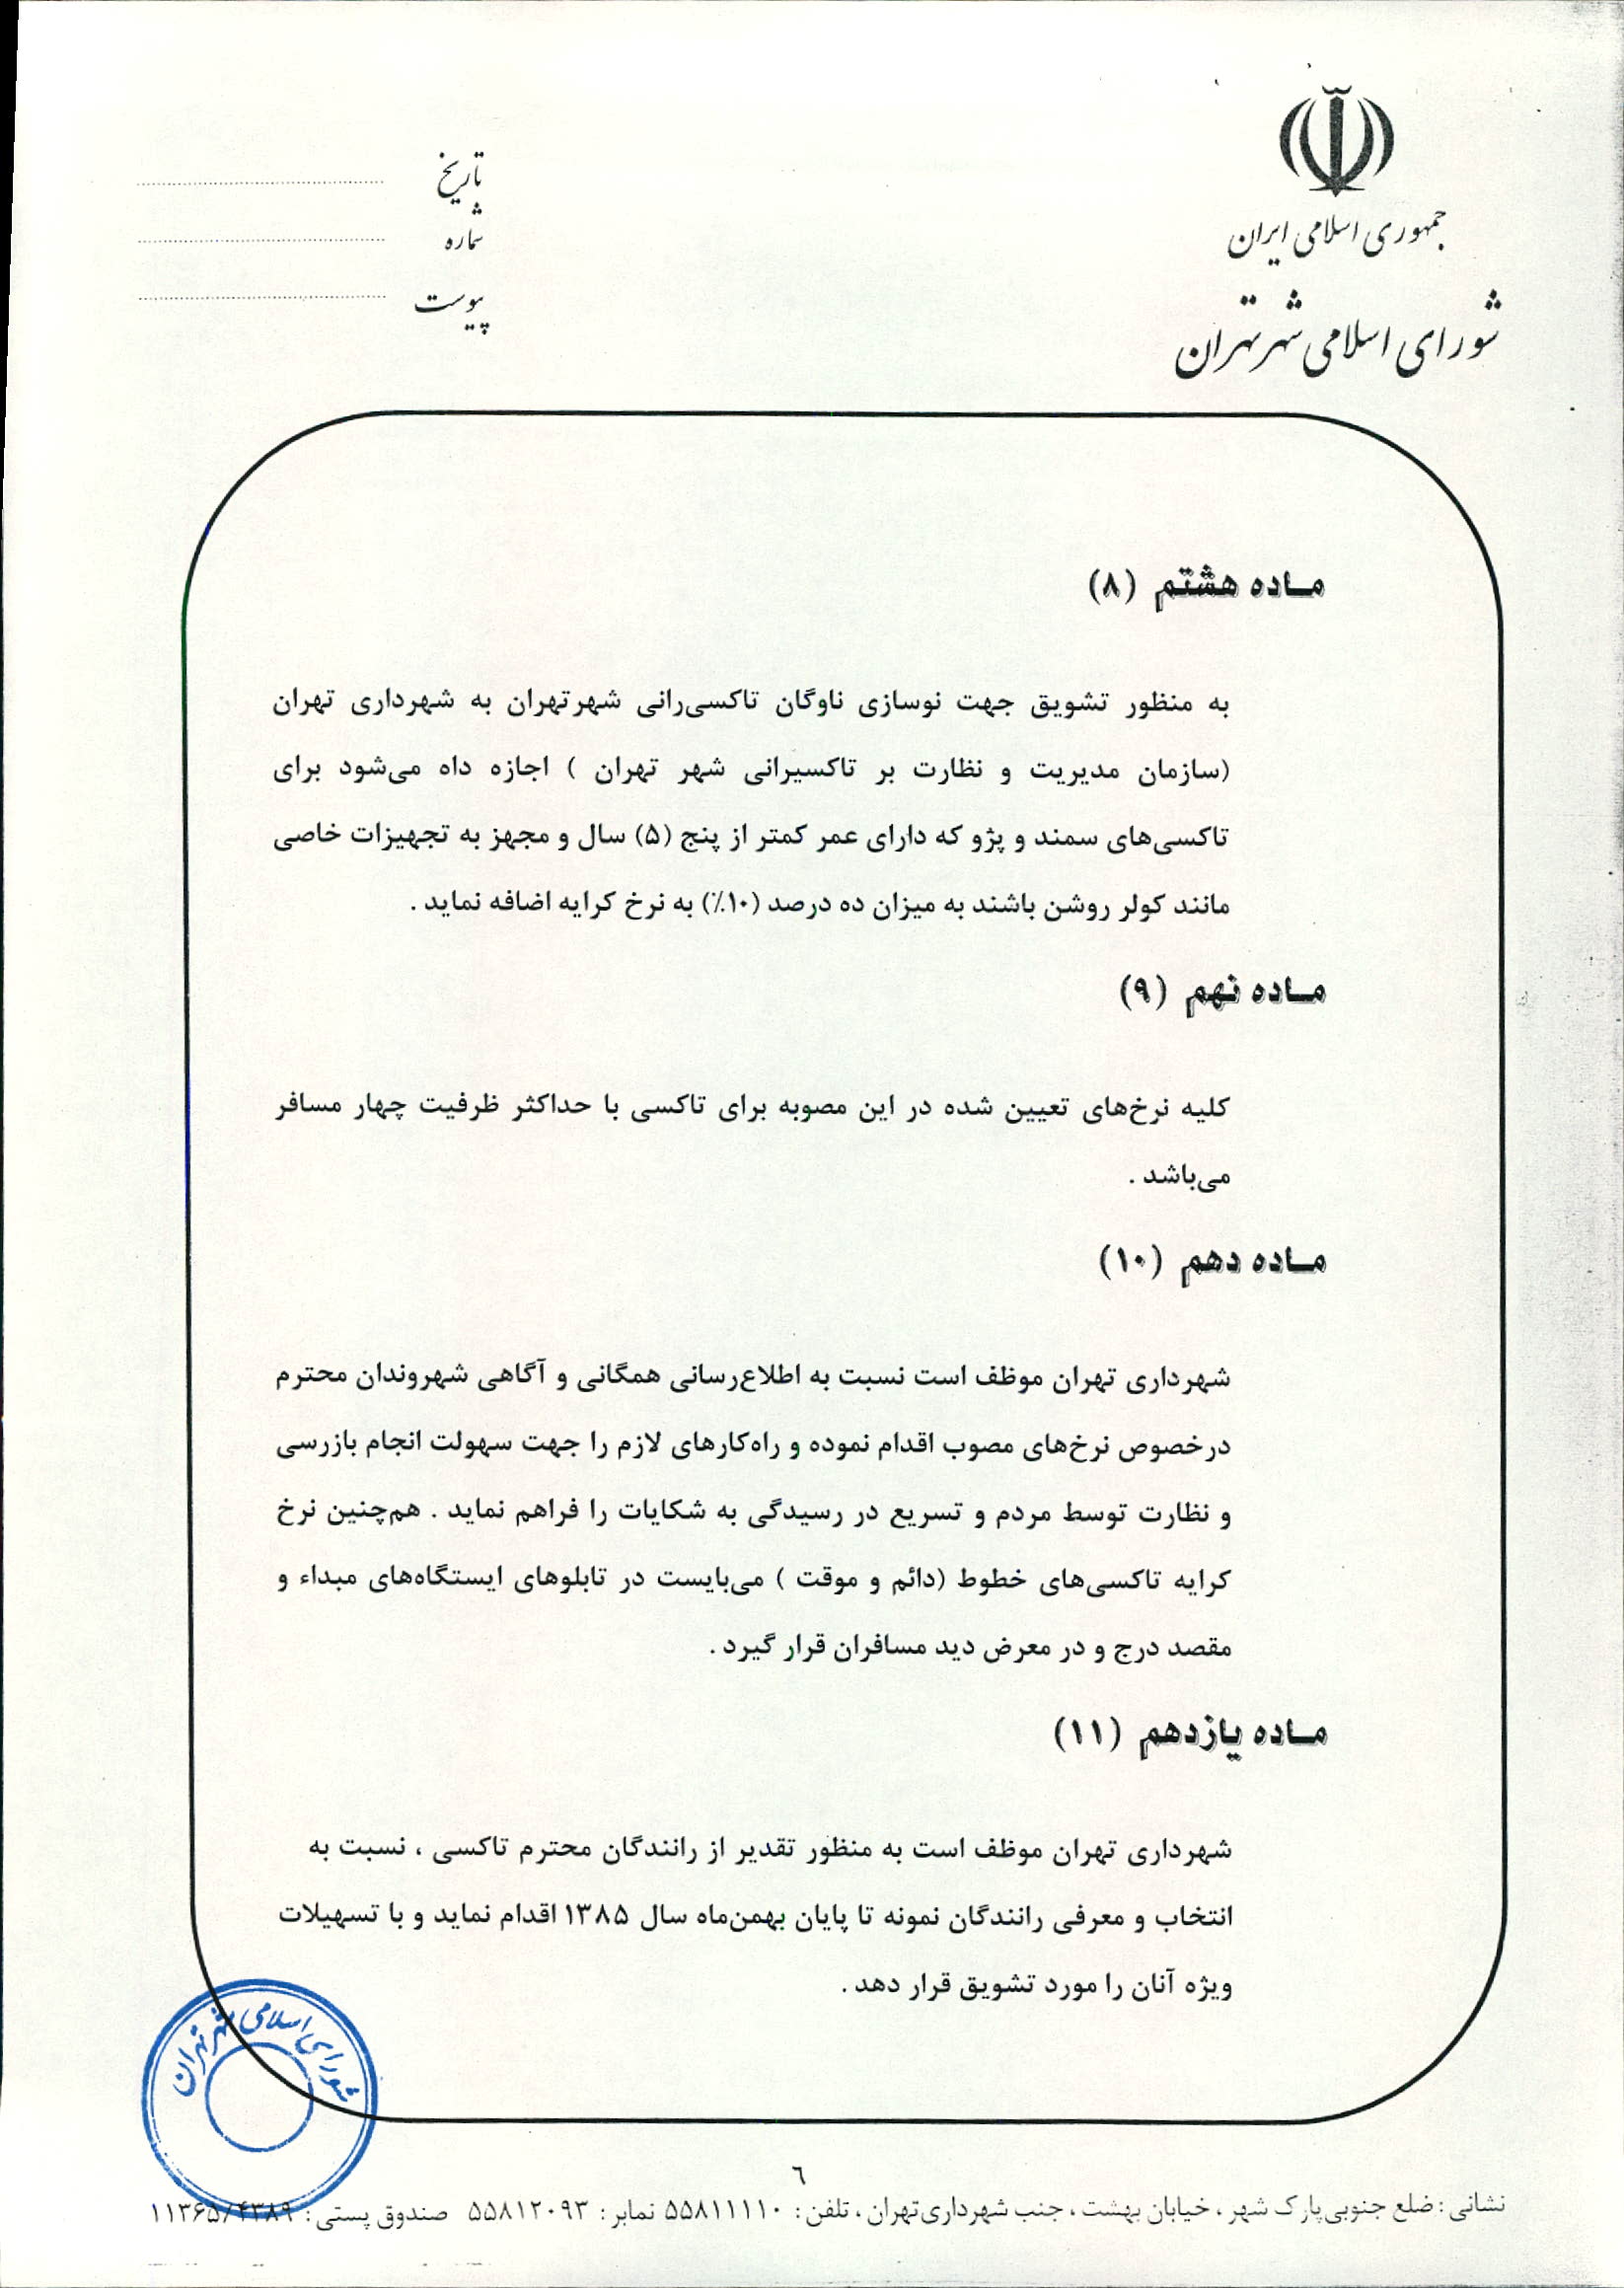 جمهوری اسلامی ایران
شورای اسلامی شهر تهران
تاریخ
شماره
پیوست
مـاده هشتم (۸)
به منظور تشویق جهت نوسازی ناوگان تاکسی‌رانی شهرتهران به شهرداری تهران
(سازمان مدیریت و نظارت بر تاکسیرانی شهر تهران ) اجازه داه می‌شود برای
تاکسی‌های سمند و پژو که دارای عمر کمتر از پنج (۵) سال و مجهز به تجهیزات خاصی
مانند کولر روشن باشند به میزان ده درصد (۱۰٪) به نرخ کرایه اضافه نماید .
مـاده نهم (۹)
کلیه نرخ‌های تعیین شده در این مصوبه برای تاکسی با حداکثر ظرفیت چهار مسافر
می‌باشد .
مـاده دهم (۱۰)
شهرداری تهران موظف است نسبت به اطلاع‌رسانی همگانی و آگاهی شهروندان محترم
درخصوص نرخ‌های مصوب اقدام نموده و راه‌کارهای لازم را جهت سهولت انجام بازرسی
و نظارت توسط مردم و تسریع در رسیدگی به شکایات را فراهم نماید . هم‌چنین نرخ
کرایه تاکسی‌های خطوط (دائم و موقت ) می‌بایست در تابلوهای ایستگاه‌های مبداء و
مقصد درج و در معرض دید مسافران قرار گیرد .
مـاده یازدهم (۱۱)
شهرداری تهران موظف است به منظور تقدیر از رانندگان محترم تاکسی ، نسبت به
انتخاب و معرفی رانندگان نمونه تا پایان بهمن‌ماه سال ۱۳۸۵ اقدام نماید و با تسهیلات
ویژه آنان را مورد تشویق قرار دهد .
شورای اسلامی شهر تهران
٦
نشانی : ضلع جنوبی‌پارک شهر ، خیابان بهشت ، جنب شهرداری‌تهران ، تلفن : ۵۵۸۱۱۱۱۰ نمابر : ۵۵۸۱۲۰۹۳ صندوق پستی : ۱۱۳۶۵/۴۳۸۹